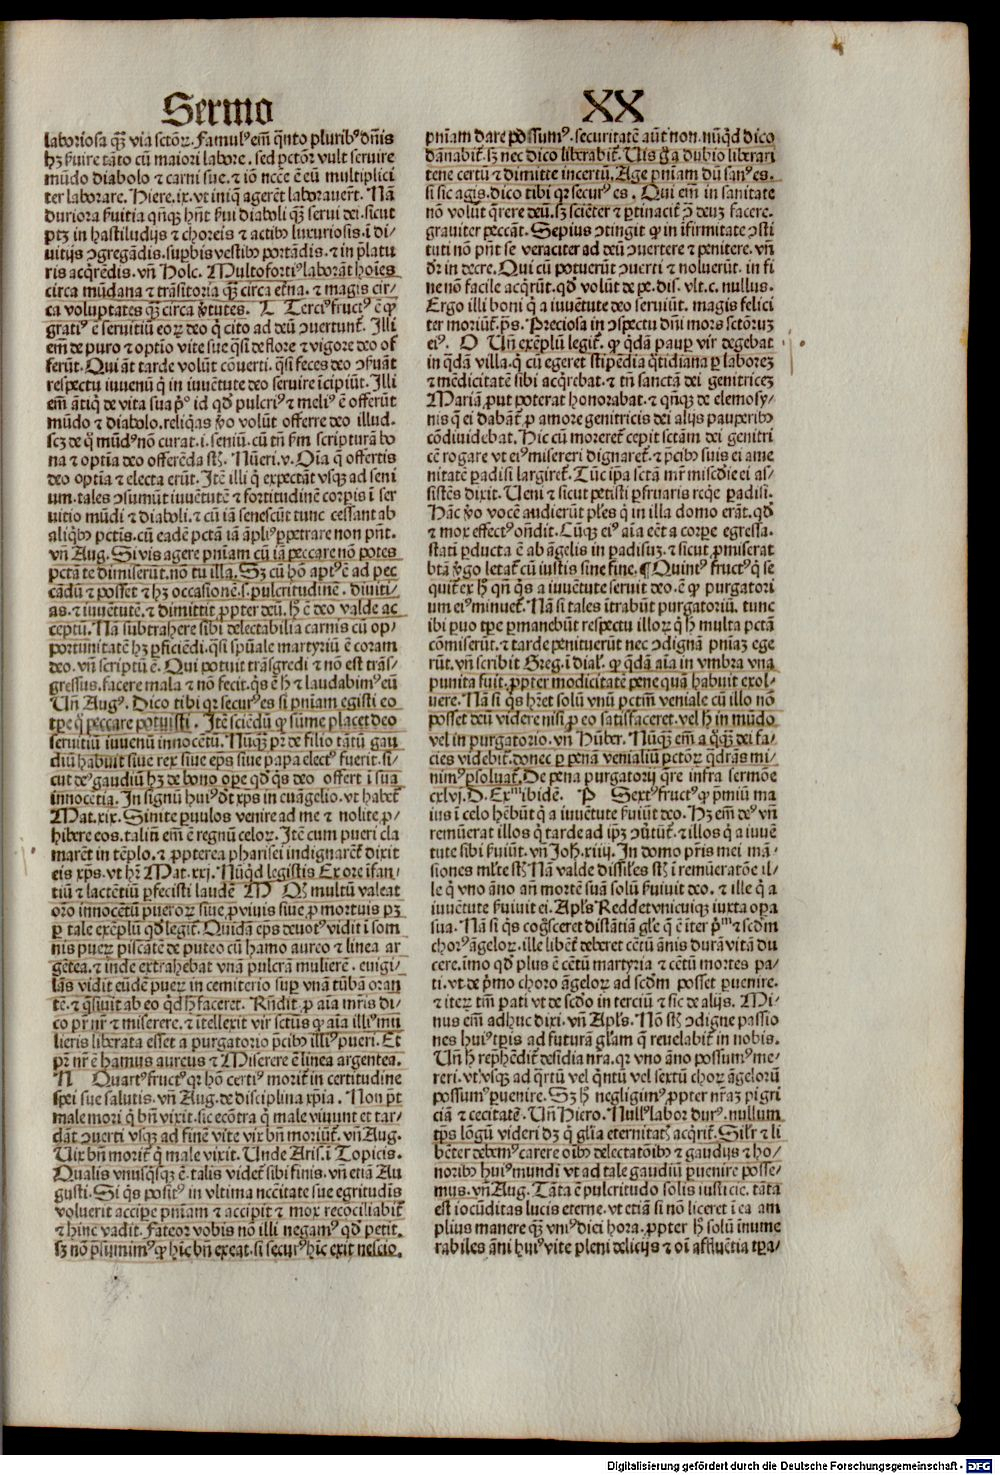 Sermo
laboriosa qᷓꝫ via sctōꝝ. Famulꝰ em̄ q̄nto pluribꝰ dn̄is
hꝫ ẜuire tāto cū maiori labore. sed pctōr vult seruire
mūdo diabolo ⁊ carni sue. ⁊ iō ncc̄e ē eū multiplici
ter laborare. Hiere.ix. vt iniq̄ agerēt laborauert̄. Nā
duriora ẜuitia qn̄qꝫ hn̄t ẜui diaboli qᷓꝫ serui dei. sicut
ptꝫ in hastiludijs ⁊ choreis ⁊ actibꝰ luxuriosis. ī di⸗
uitijs ↄgregādis. suꝑbis vestibꝰ portādis. ⁊ in p̄latu
ris acq̄rēdis. vn̄ Holc. Multofortiꝰ laborāt hoīes
circa mūdana ⁊ trāsitoria qᷓꝫ circa et̄na. ⁊ magis cir⸗
ca voluptates qᷓꝫ circa v̓tutes. L Terciꝰ fructꝰ ē ꝙ
gratiꝰ ē seruitiū eoꝝ deo q̇ cito ad deū ↄuertunt᷑. Illi
em̄ de puro ⁊ optīo vite sue qͣsi de flore ⁊ vigore deo of
ferūt. Qui aūt tarde volūt cōuerti. qͣsi feces deo ↄẜuāt
respectu iuuenū q̇ in iuuētute deo seruire īcipiūt. Illi
em̄ ātiq̇ de vita sua pͥꝰ id qd̓ pulcriꝰ ⁊ meliꝰ ē offerūt
mūdo ⁊ diabolo. reliqͣas v̓o volūt offerre deo illud.
scꝫ de q̊ mūdꝰ nō curat .i. seniū. cū tn̄ ẜm scripturā bo
na ⁊ optīa deo offerēda st̄. Nūeri.v. Oīa q̄ offertis
deo optīa ⁊ electa erūt. Itē illi q̇ expectāt vsqꝫ ad seni
um. tales ↄsumūt iuuētutē ⁊ fortitudinē corꝑis ī ser
uitio mūdi ⁊ diaboli. ⁊ cū iā senescūt tunc cessant ab
aliqͥbꝰ pctīs. cū eadē pctā iā āpliꝰ ꝑpetrare non pn̄t.
vn̄ Aug. Si vis agere pn̄iam cū iā peccare nō potes
pctā te dimiserūt. nō tu illa. Sꝫ cū hō aptꝰ ē ad pec
cādū ⁊ posset ⁊ hꝫ occasionē .s. pulcritudinē. diuiti⸗
as. ⁊ iuuētutē. ⁊ dimittit ꝓpter deū. h̄ ē deo valde ac
ceptū. Nā subtrahere sibi delectabilia carnis cū op⸗
portunitatē hꝫ ꝑficiēdi. qͣsi spūale martyriū ē coram
deo. vn̄ scriptū ē. Qui potuit trāsgredi ⁊ nō est trās⸗
gressus. facere mala ⁊ nō fecit. qͥs ē h̄ ⁊ laudabimꝰ eū
Un̄ Augꝰ. Dico tibi qꝛ securꝰ es si pn̄iam egisti eo
tꝑe q̊ peccare potuisti. Itē sciēdū ꝙ sūme placet deo
seruitiū iuuenū innocētū. Nūqᷓꝫ pr̄ de filio tātū gau
diū habuit siue rex siue eps̄ siue papa electꝰ fuerit. si⸗
cut deꝰ gaudiū hꝫ de bono oꝑe qd̓ qͥs deo offert ī sua
innocētia. In signū huiꝰ dr̄ xp̄s in euāgelio. vt habet᷑
Mat.xix. Sinite ꝑuulos venire ad me ⁊ nolite ꝓ⸗
hibere eos. taliū em̄ ē regnū celoꝝ. Itē cum pueri cla
marēt in tēplo. ⁊ ꝓpterea pharisei indignarēt᷑ dixit
eis xp̄s. vt hr̄ Mat.xxj. Nūqͥd legistis Ex ore īfan⸗
tiū ⁊ lactētiū ꝑfecisti laudē M Qꝫ multū valeat
oro innocētū pueroꝝ siue ꝓ viuis siue ꝓ mortuis pꝫ
ꝑ tale exēplū qd̓ legit᷑. Quidā eps̄ deuotꝰ vidit ī som
nis pueꝝ piscātē de puteo cū hamo aureo ⁊ linea ar
gētea. ⁊ inde extrahebat vnā pulcrā mulierē. euigi⸗
lās vidit eūdē pueꝝ in cemiterio suꝑ vnā tūbā oran
tē. ⁊ q̄siuit ab eo qͥd h̄ faceret. Rn̄dit. ꝓ aīa mr̄is di⸗
co pr̄ nr̄ ⁊ miserere. ⁊ ītellexit vir sctūs ꝙ aīa illiꝰ mu
lieris liberata esset a purgatorio p̄cibꝰ illiꝰ pueri. Et
pr̄ nr̄ ē hamus aureus ⁊ Miserere ē linea argentea.
N Quartꝰ fructꝰ qꝛ hō certiꝰ morit᷑ in certitudine
spei sue salutis. vn̄ Aug. de disciplina xp̄ia. Non pt̄
male mori q̇ bn̄ vixit. sic ecōtra q̇ male viuunt et tar⸗
dāt ↄuerti vsqꝫ ad finē vite vix bn̄ moriūt᷑. vn̄ Aug.
Uix bn̄ morit᷑ q̇ male vixit. Unde Aris. ī Topicis.
Qualis vnusqͥsqꝫ ē. talis videt᷑ sibi finis. vn̄ etiā Au
gusti. Si qͥs positꝰ in vltima ncc̄itate sue egritudīs
voluerit accipe pn̄iam ⁊ accipit ⁊ mox recōciliabit᷑
⁊ hinc vadit. fateor vobis nō illi negamꝰ qd̓ petit.
sꝫ nō p̄sumimꝰ ꝙ hic bn̄ exeat. si securꝰ hic exit nescio.
XX
pn̄iam dare possumꝰ. securitatē aūt non. nūqͥd dico
dānabit᷑. sꝫ nec dico liberabit᷑. Uis g̊ a dubio liberari
tene certū ⁊ dimitte incertū. Age pn̄iam dū sanꝰ es.
si sic agis. dico tibi qꝛ securꝰ es. Qui em̄ in sanitate
nō volūt q̄rere deū. sꝫ sciēter ⁊ ꝑtinacit᷑ ↄ̄ deuꝫ facere.
grauiter peccāt. Sepius ↄtingit ꝙ in īfirmitate ↄsti
tuti nō pn̄t se veraciter ad deū ↄuertere ⁊ penitere. vn̄
dr̄ in decre. Qui cū potuerūt ↄuerti ⁊ noluerūt. in fi
ne nō facile acqͥrūt. qd̓ volūt de pe. dis. vlt. c. nullus.
Ergo illi boni q̇ a iuuētute deo seruiūt. magis felici
ter moriūt᷑. ps̄. Preciosa in ↄspectu dn̄i mors sctōruꝫ
eiꝰ. O Un̄ exēplū legit᷑. ꝙ qͥdā pauꝑ vir degebat
in qͣdā villa. q̇ cū egeret stipēdia q̊tidiana ꝑ laboreꝫ
⁊ mēdicitatē sibi acq̄rebat. ⁊ tn̄ sanctā dei genitriceꝫ
Mariā, ꝓut poterat honorabat. ⁊ qn̄qꝫ de elemosy⸗
nis q̄ ei dabāt᷑ ꝓ amore genitricis dei alijs pauperibꝰ
cōdiuidebat. Hic cū moreret᷑ cepit sctām dei genitri
cē rogare vt eiꝰ misereri dignaret᷑. ⁊ p̄cibꝰ suis ei ame
nitatē padisi largiret᷑. Tūc ip̄a sctā mr̄ misc̄die ei as⸗
sistēs dixit. Ueni ⁊ sicut petisti ꝑfruaris reqͥe ꝑadisi.
Hāc v̓o vocē audierūt ples̄ q̇ in illa domo erāt. qd̓
⁊ mox effectꝰ on̄dit. Cūqꝫ eiꝰ aīa eēt a corꝑe egressa.
statī ꝑducta ē ab āgelis in padisuꝫ. ⁊ sicut ꝓmiserat
btā v̓go letat᷑ cū iustis sine fine. ¶ Quintꝰ fructꝰ q̇ se
quit᷑ ex h̄ qn̄ qͥs a iuuētute seruit deo. ē ꝙ purgatori
um eiꝰ minuet᷑. Nā si tales ītrabūt purgatoriū. tunc
ibi ꝑuo tꝑe ꝑmanebūt respectu illoꝝ q̇ h̄ multa pctā
cōmiserūt. ⁊ tarde penituerūt nec ↄdignā pn̄iaꝫ ege
rūt. vn̄ scribit Greg. ī dial. ꝙ qͥdā aīa in vmbra vna
punita fuit. ꝓpter modicitatē pene quā habuit exol⸗
uere. Nā si qͥs hr̄et solū vnū pctm̄ veniale cū illo nō
posset deū videre nisi ꝓ eo satisfaceret. vel h̄ in mūdo
vel in purgatorio. vn̄ Hūber. Nūqͣꝫ em̄ a q̊qͣꝫ dei fa⸗
cies videbit᷑. donec ꝑ penā venialiū pctōꝝ qͣdrās mi⸗
nimꝰ ꝑsoluat᷑. De pena purgatorij q̄re infra sermōe
cxlvj. D. Exᵐ ibidē. P Sextꝰ fructꝰ ꝙ p̄miū ma
ius ī celo hēbūt q̇ a iuuētute ẜuiūt deo. Hꝫ em̄ deꝰ vn̄
remūerat illos q̇ tarde ad ip̄ꝫ ↄu̓tūt᷑. ⁊ illos q̇ a iuuē
tute sibi ẜuiūt. vn̄ Joh. xiiij. In domo pr̄is mei mā⸗
siones ml̄te st̄. Nā valde dissiles st̄ ī remūeratōe il⸗
le q̇ vno āno an̄ mortē suā solū ẜuiuit deo. ⁊ ille q̇ a
iuuētute ẜuiuit ei. Apl̄s Reddet vnicuiqꝫ iuxta oꝑa
sua. Nā si qͥs cog̊sceret distātiā gl̄e q̄ ē īter pͥmᵐ ⁊ scdm̄
chorꝰ āgeloꝝ. ille libēt᷑ deberet cētū ānis durā vitā du
cere. īmo qd̓ plus ē cētū martyria ⁊ cētū mortes pa⸗
ti. vt de pͥmo choro āgeloꝝ ad scdm̄ posset ꝑuenire.
⁊ iteꝝ tm̄ pati vt de scdo̓ in terciū ⁊ sic de alijs. Mi⸗
nus em̄ adhuc dixi. vn̄ Apl̄s. Nō st̄ ↄdigne passio
nes huiꝰ tꝑis ad futurā gl̄am q̄ reuelabit᷑ in nobis.
Un̄ h̄ rep̄hēdit᷑ desidia nr̄a. qꝛ vno āno possumꝰ me⸗
reri. vt vsqꝫ ad q̄rtū vel qͥntū vel sextū choꝝ āgeloꝝ
possumꝰ ꝑuenire. Sꝫ h̄ negligimꝰ ꝓpter nr̄aꝫ pigri
ciā ⁊ cecitatē. Un̄ Hiero. Nullꝰ labor durꝰ. nullum
tp̄s lōgū videri dꝫ q̊ gl̄ia eternitatꝭ acqͥrit᷑. Silr̄ ⁊ li
bēter debemꝰ carere oībꝰ delectatōibꝰ ⁊ gaudijs ⁊ ho⸗
noribꝰ huiꝰ mundi vt ad tale gaudiū ꝑuenire posse⸗
mus. vn̄ Aug. Tāta ē pulcritudo solis iusticie. tāta
est iocūditas lucis eterne. vt etiā si nō liceret ī ea am
plius manere qᷓꝫ vniꝰ diei hora. ꝓpter h̄ solū īnume
rabiles āni huiꝰ vite pleni delicijs ⁊ oī affluētia tꝑa⸗
Digitalisierung gefördert durch die Deutsche Forschungsgemeinschaft - DFG